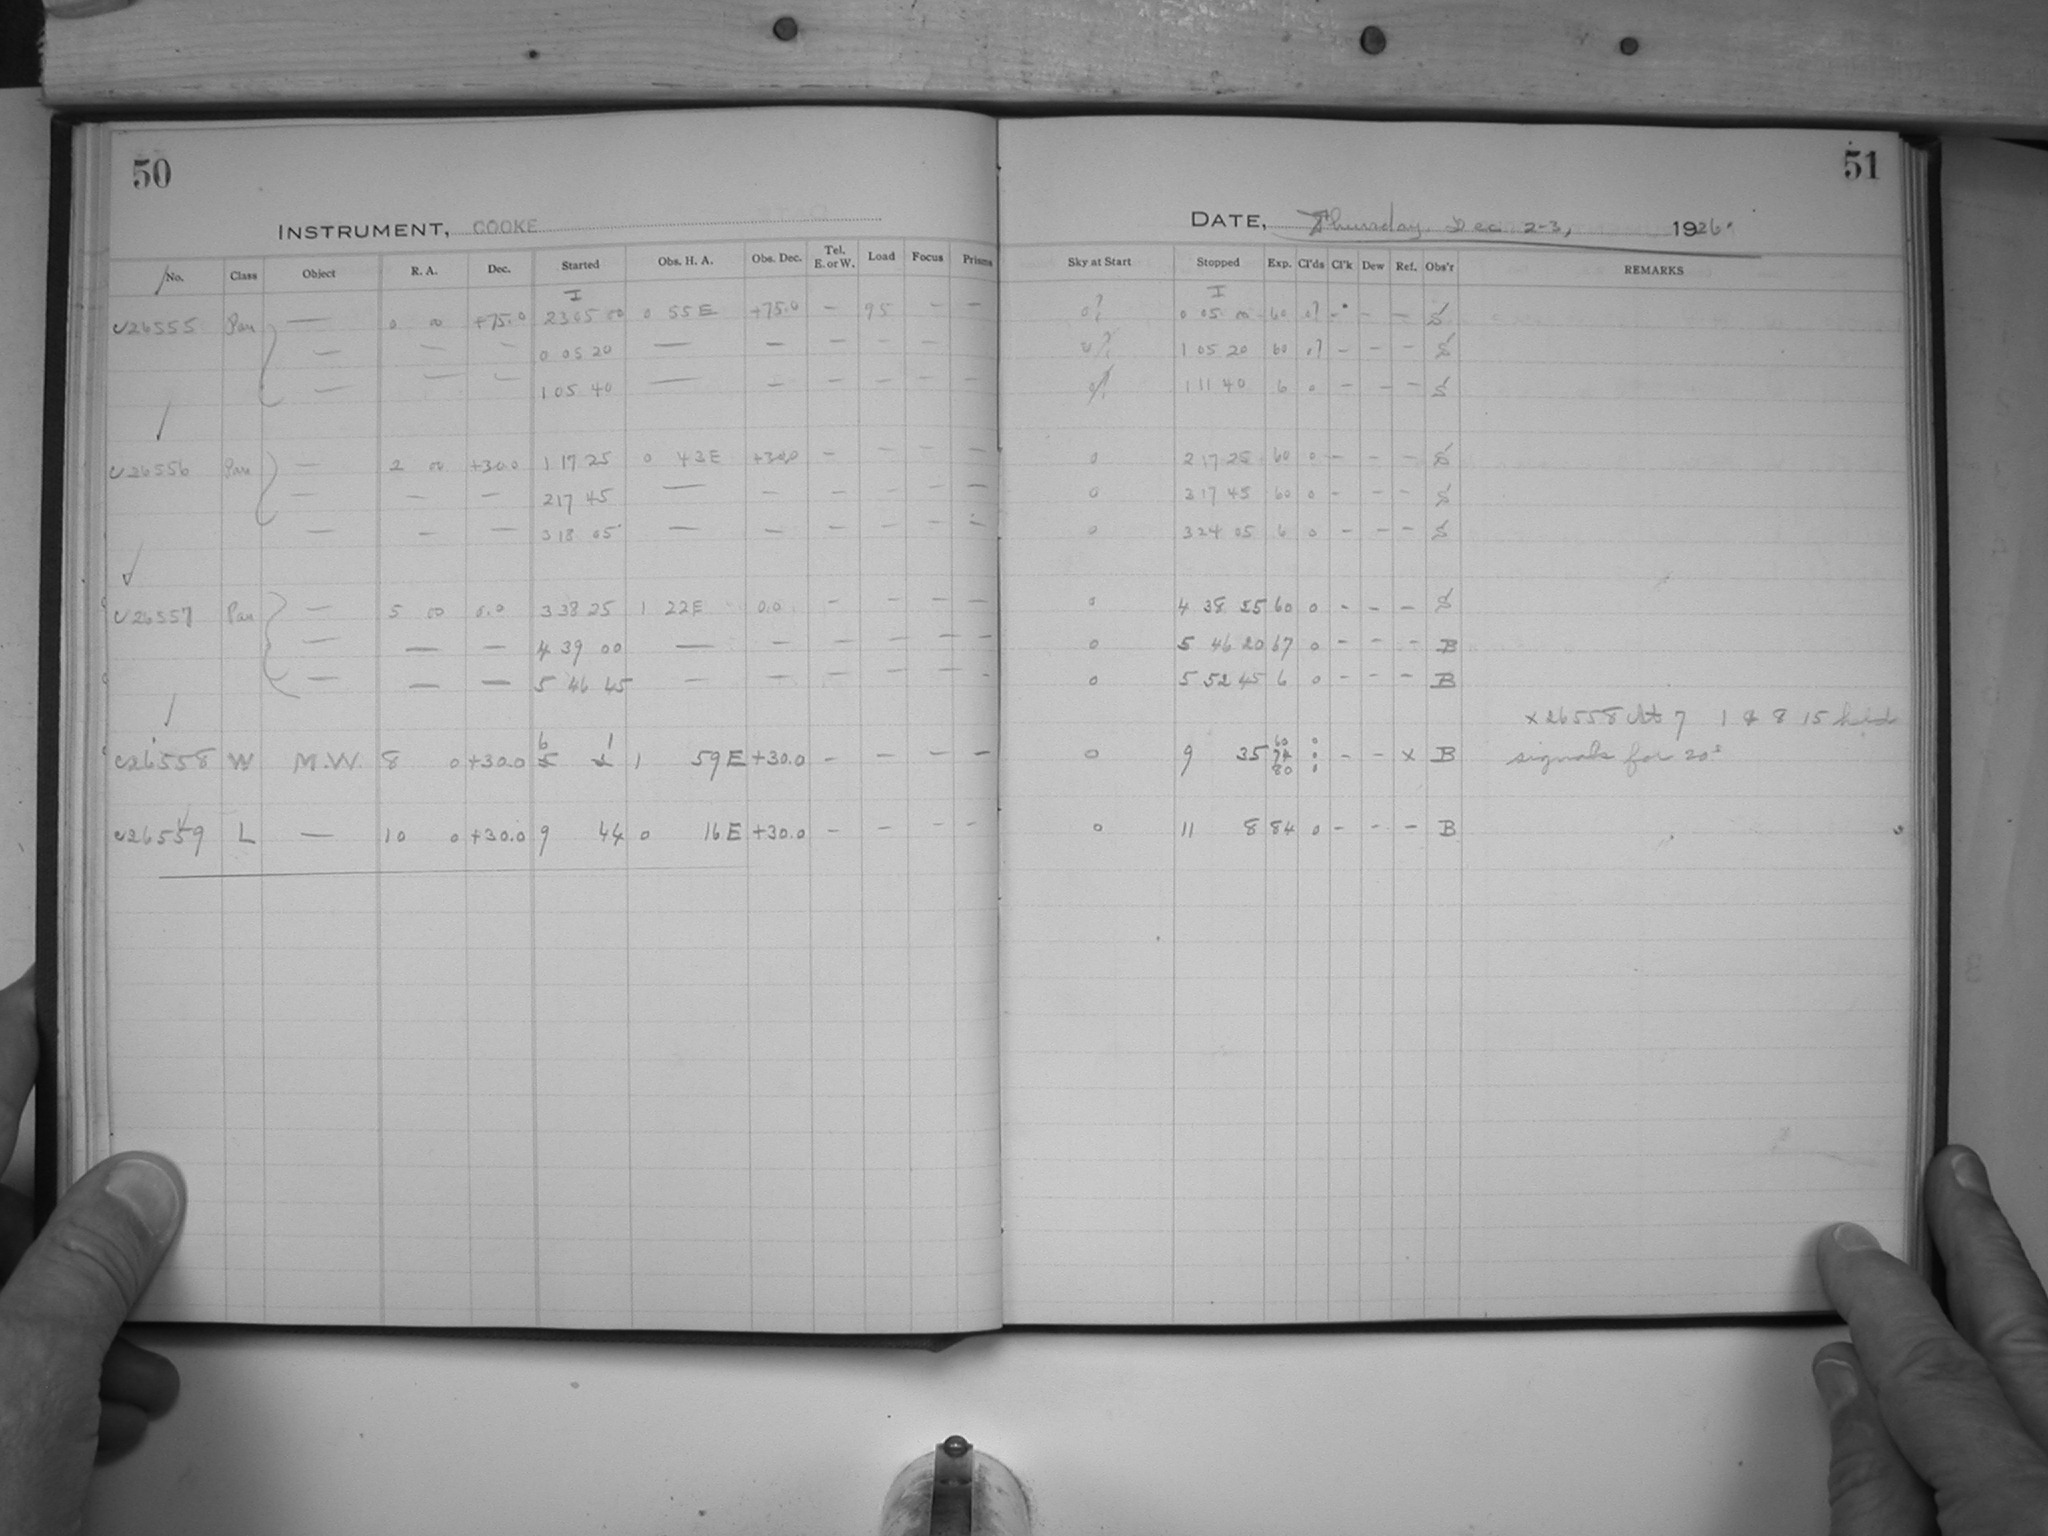 50
INSTRUMENT, COOKE
No. Class Object R. A. Dec. Started Obs. H. A. Obs. Dec. Tel. E. or W. Load Focus Prisms
I
c26555 Pan — 0 00 +75.0 23 05 00 0 55 E +75.0 — 95 — —
— — — 0 05 20 — — — — — —
— — — 1 05 40 — — — — — —
c26556 Pan — 2 00 +30.0 1 17 25 0 43 E +30.0 — — — —
— — — 2 17 45 — — — — — —
— — — 3 18 05 — — — — — —
c26557 Pan — 5 00 0.0 3 38 25 1 22 E 0.0 — — — —
— — — 4 39 00 — — — — — —
— — — 5 46 45 — — — — — —
6 1
c26558 W M.W. 8 0 +30.0 1 59 E +30.0 — — — —
c26559 L — 10 0 +30.0 9 44 0 16 E +30.0 — — — —
51
DATE, Thursday, Dec. 2-3, 1926.
Sky at Start Stopped Exp. Cl'ds Cl'k Dew Ref. Obs'r REMARKS
I
0? 0 05 00 60 0? — — — S
1 05 20 60 0? — — — S
1 11 40 6 0 — — — S
0 2 17 25 60 0 — — — S
0 3 17 45 60 0 — — — S
0 3 24 05 6 0 — — — S
0 4 38 25 60 0 — — — S
0 5 46 20 67 0 — — — B
0 5 52 45 6 0 — — — B
x 26558 At 7 1 & 8 15 held
60 0
0 9 35 74 0 — — x B signals for 20s
80 0
0 11 8 84 0 — — — B